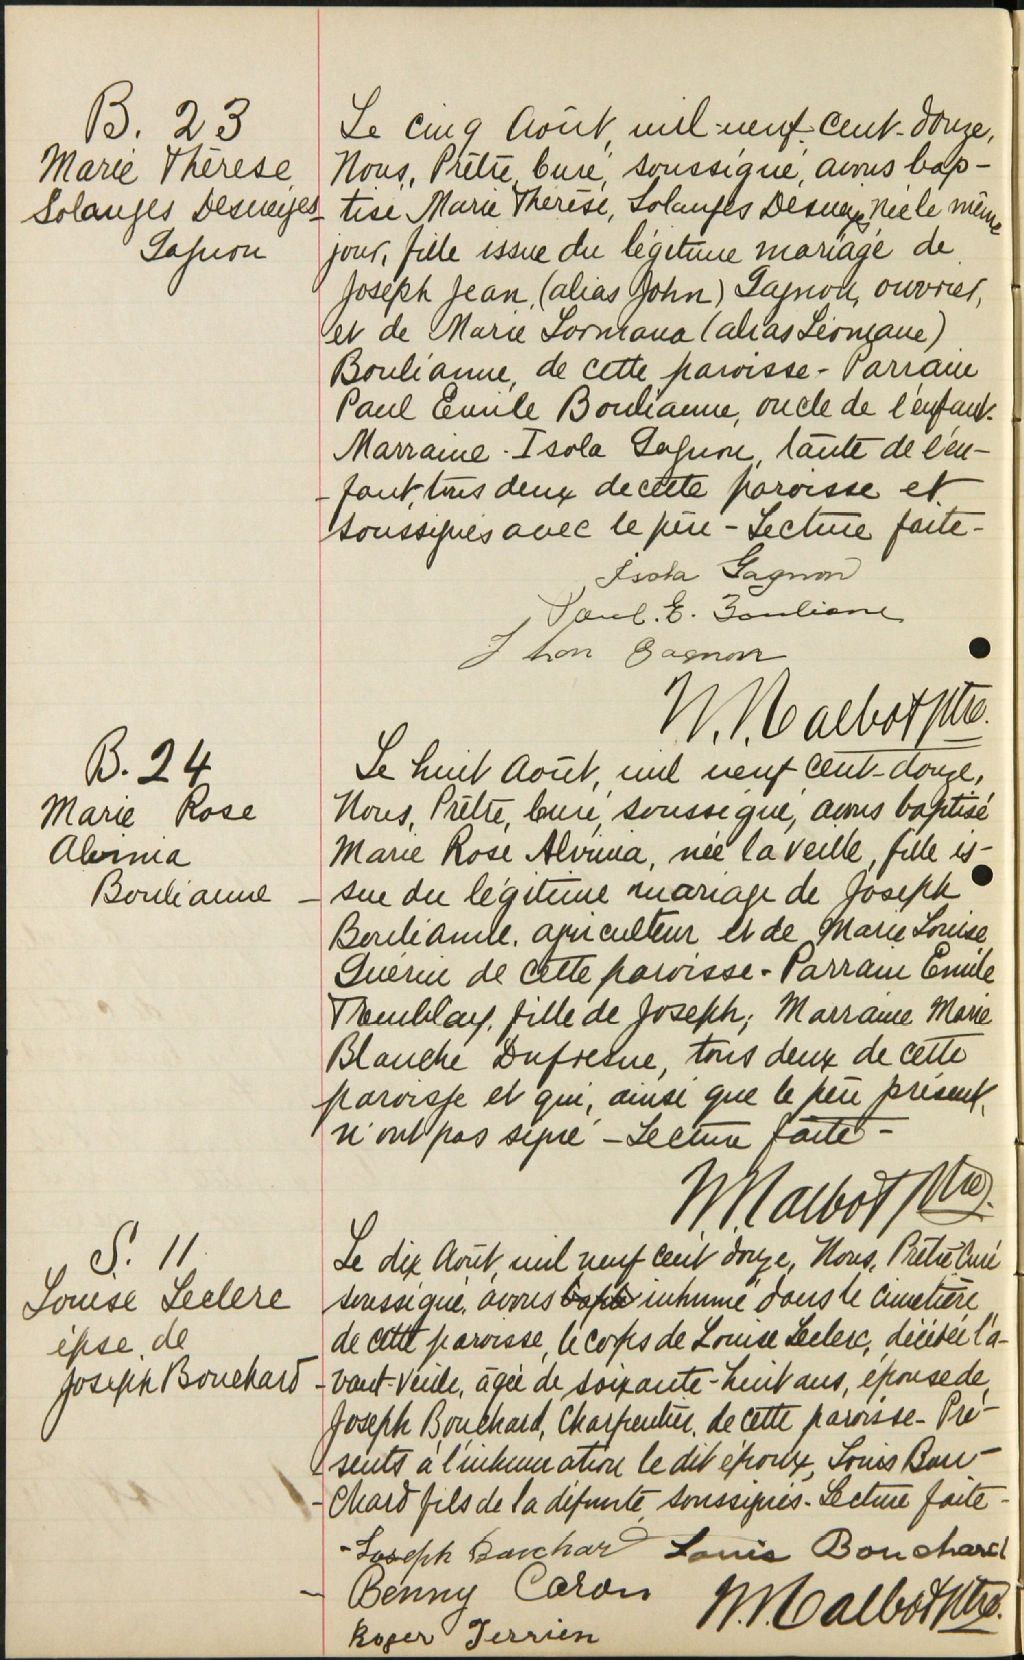 B. 23
Marie Thérèse
Solanges Desneiges
Gagnon
Le cinq Août, mil-neuf-cent-douze,
Nous, Prêtre, Curé, soussigné, avons bap-
tisé Marie Thérèse, Solanges Desneiges, née le même
jour, fille issue du légitime mariage de
Joseph Jean, (alias John) Gagnon, ouvrier,
et de Marie (alias Léomane)
Boulianne, de cette paroisse - Parrain
Paul Emile Boulianne, oncle de l'enfant.
Marraine - Isola Gagnon, tante de l'en-
fant, tous deux de cette paroisse et
soussignés avec le père - Lecture faite -
Isola Gagnon
Paul. E. Bouliane
Jhon Gagnon
Talbot ptre.
B. 24
Marie Rose
Alvinia
Boulianne
Le huit Août, mil neuf cent-douze,
Nous, Prêtre, Curé, soussigné, avons baptisé
Marie Rose Alvinia, née la veille, fille is-
sue du légitime mariage de Joseph
Boulianne, agriculteur et de Marie Louise
Guérin de cette paroisse - Parrain Emile
Tremblay, fille de Joseph; Marraine Marie
Blanche Dufresne, tous deux de cette
paroisse et qui, ainsi que le père présent,
n'ont pas signé - Lecture faite -
Talbot ptre.
S. 11
Louise Leclerc
épse de
Joseph Bouchard
Le dix Août, mil neuf cent douze, Nous, Prêtre Curé
soussigné, avons inhumé dans le cimetière
de cette paroisse, le corps de Louise Leclerc, décédée l'a-
vant-veille, âgée de soixante-huit ans, épouse de
Joseph Bouchard, Charpentier, de cette paroisse - Pré-
sents à l'inhumation le dit époux, Louis Bou-
chard fils de la défunte, soussignés - Lecture faite -
Joseph Bouchard Louis Bouchard
Benny Caron Talbot ptre.
Roger Terrien